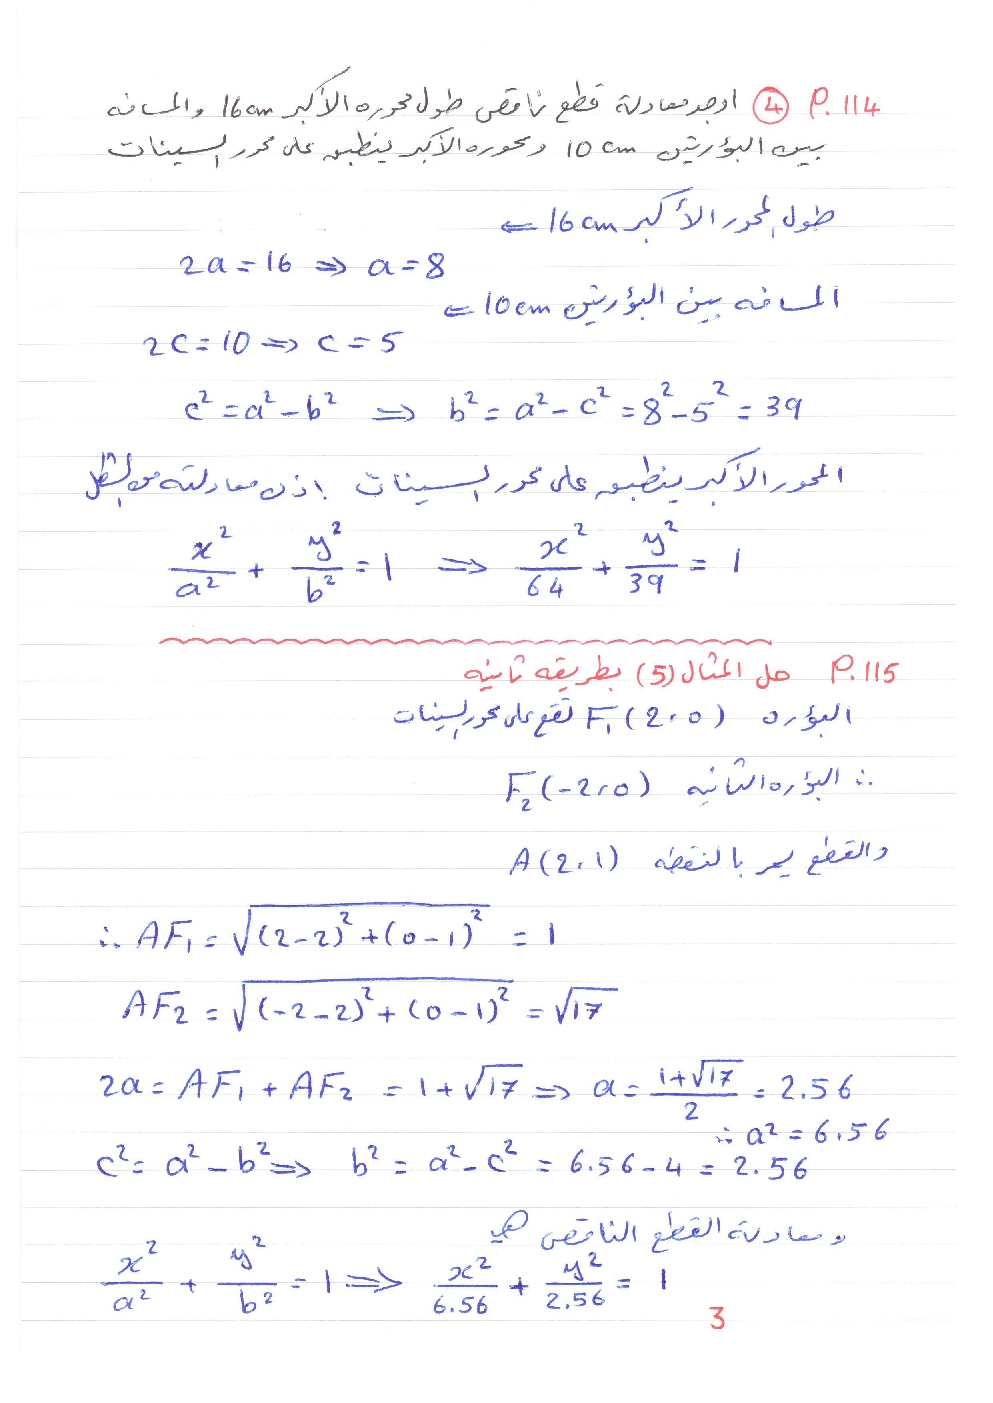 P.114 ④ اوجد معادلة قطع ناقص طول محوره الأكبر 16cm والمسافه
بين البؤرتين 10 cm ومحوره الأكبر ينطبق على محور السينات
طول المحور الأكبر 16cm ⇐
2a = 16 ⇒ a = 8
المسافه بين البؤرتين 10cm ⇐
2C = 10 ⇒ C = 5
c² = a² - b² ⇒ b² = a² - c² = 8² - 5² = 39
المحور الأكبر ينطبق على محور السينات اذن معادلته من الشكل
x²/a² + y²/b² = 1 ⇒ x²/64 + y²/39 = 1
P.115 حل المثال (5) بطريقه ثانيه
البؤره F₁(2,0) تقع على محور السينات
∴ البؤره الثانيه F₂(-2,0)
والقطع يمر بالنقطه A(2,1)
∴ AF₁ = √((2-2)² + (0-1)²) = 1
AF₂ = √((-2-2)² + (0-1)²) = √17
2a = AF₁ + AF₂ = 1 + √17 ⇒ a = (1+√17)/2 = 2.56
∴ a² = 6.56
c² = a² - b² ⇒ b² = a² - c² = 6.56 - 4 = 2.56
ومعادلة القطع الناقص هي
x²/a² + y²/b² = 1 ⇒ x²/6.56 + y²/2.56 = 1
3